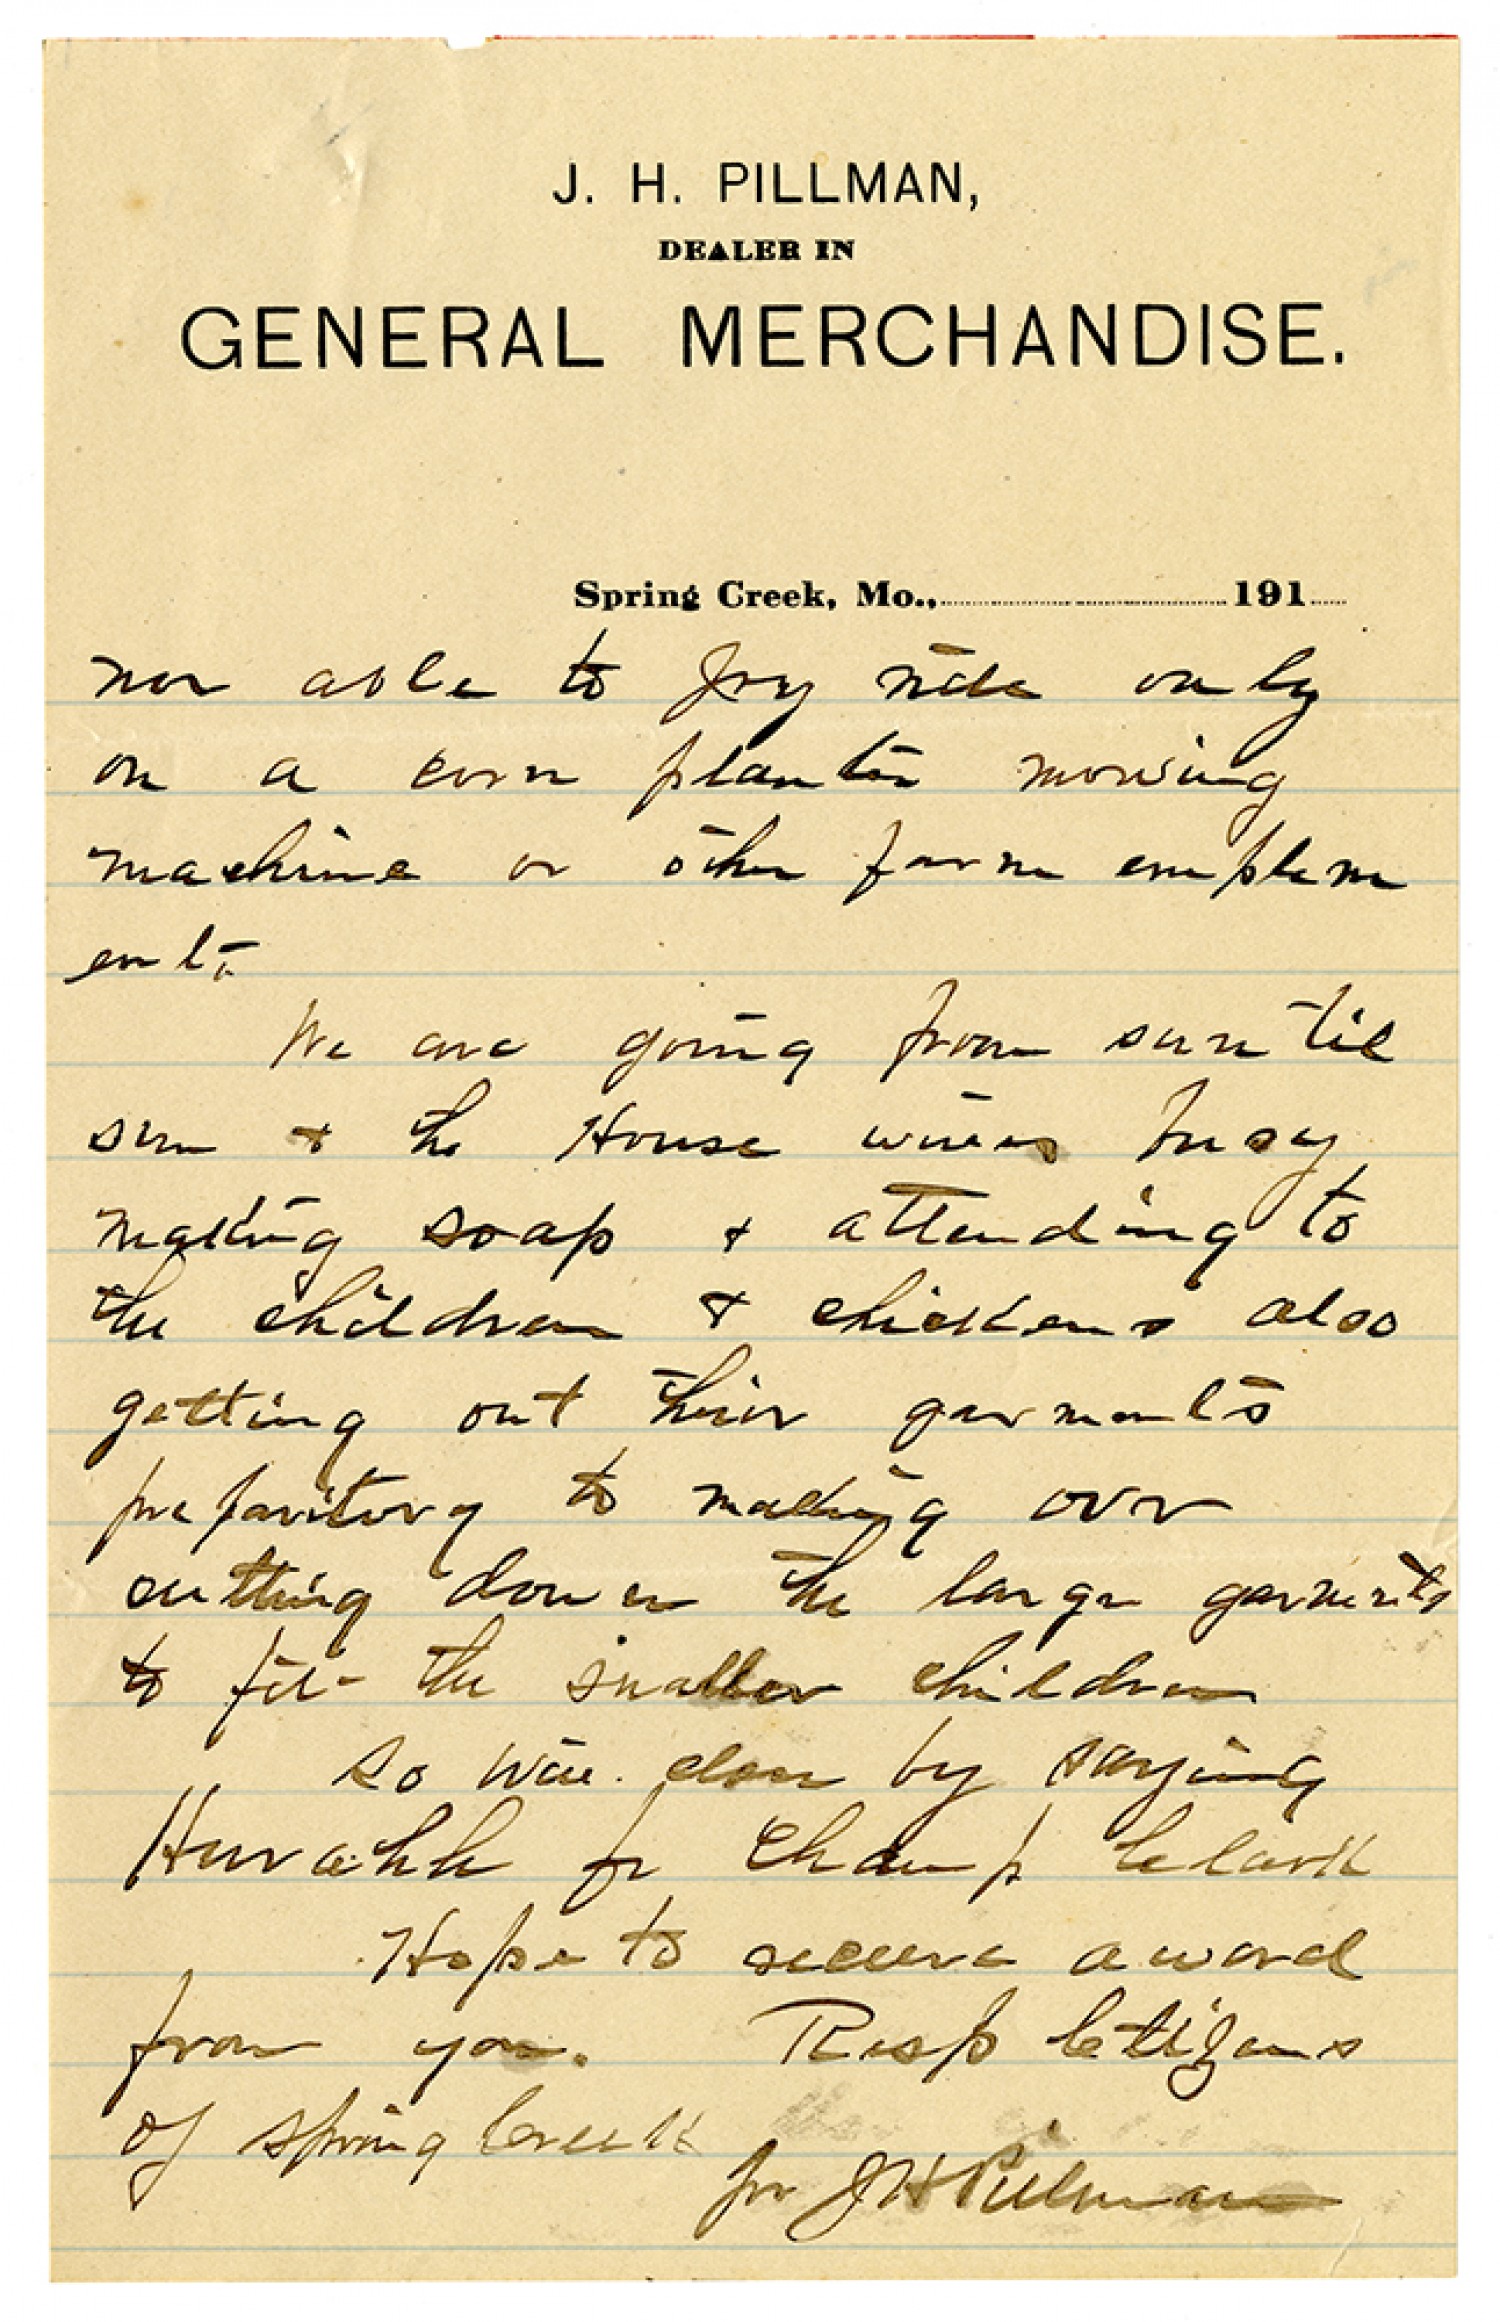 J. H. PILLMAN,
DEALER IN
GENERAL MERCHANDISE.
Spring Creek, Mo., 191
nor able to Joy ride only
on a corn planter mowing
machine or other farm emplem
ent.
We are going from sun til
sun & the House wives busy
making soap & attending to
the children & chickens also
getting out thier garments
preparitory to making over
cutting down the large garments
to fit the smaller children
So will close by saying
Hurahh for Champ Clark
Hope to receive a word
from you. Resp Citizens
of Spring Creek
for J H Pillman